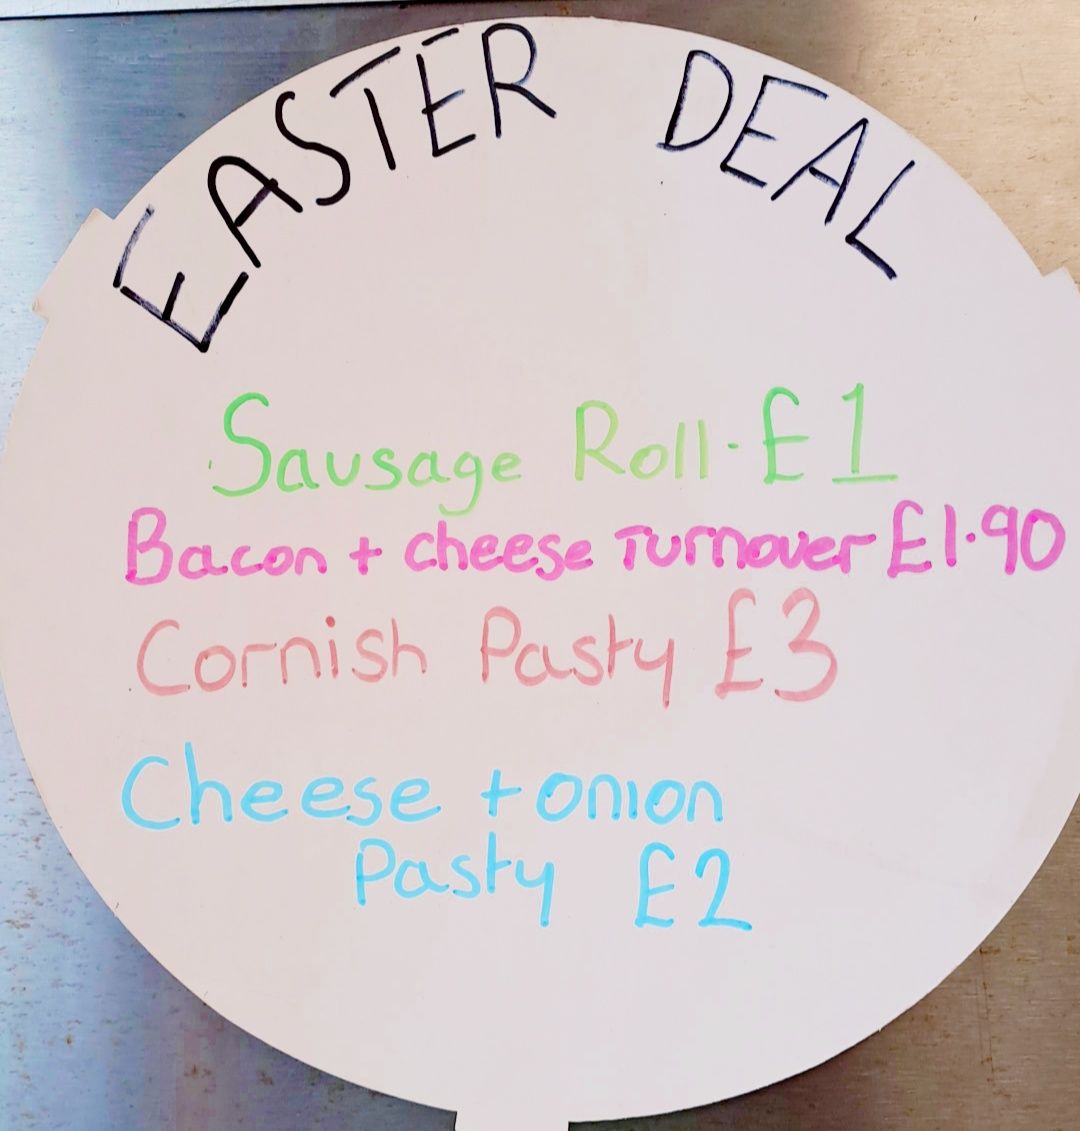 EASTER DEAL
Sausage Roll · £1
Bacon + cheese Turnover £1·90
Cornish Pasty £3
Cheese + onion
Pasty £2